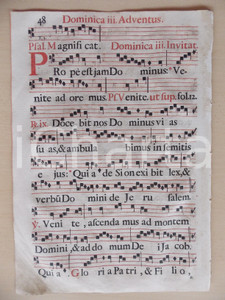 48 Dominica iii. Adventus.
Psal. Magnificat. Dominica iii. Invitat.
PRope est jam Dominus: Ve-
nite adoremus. Ps. Venite. ut sup. fol.
Docebit nos Dominus vias
suas, & ambulabimus in semitis
ejus: Quia de Sion exibit lex, &
verbū Domini de Jerusalem.
℣. Venite, ascendamus ad montem
Domini, & ad domum Dei Jacob.
Quia. Gloria Patri, & Filio,